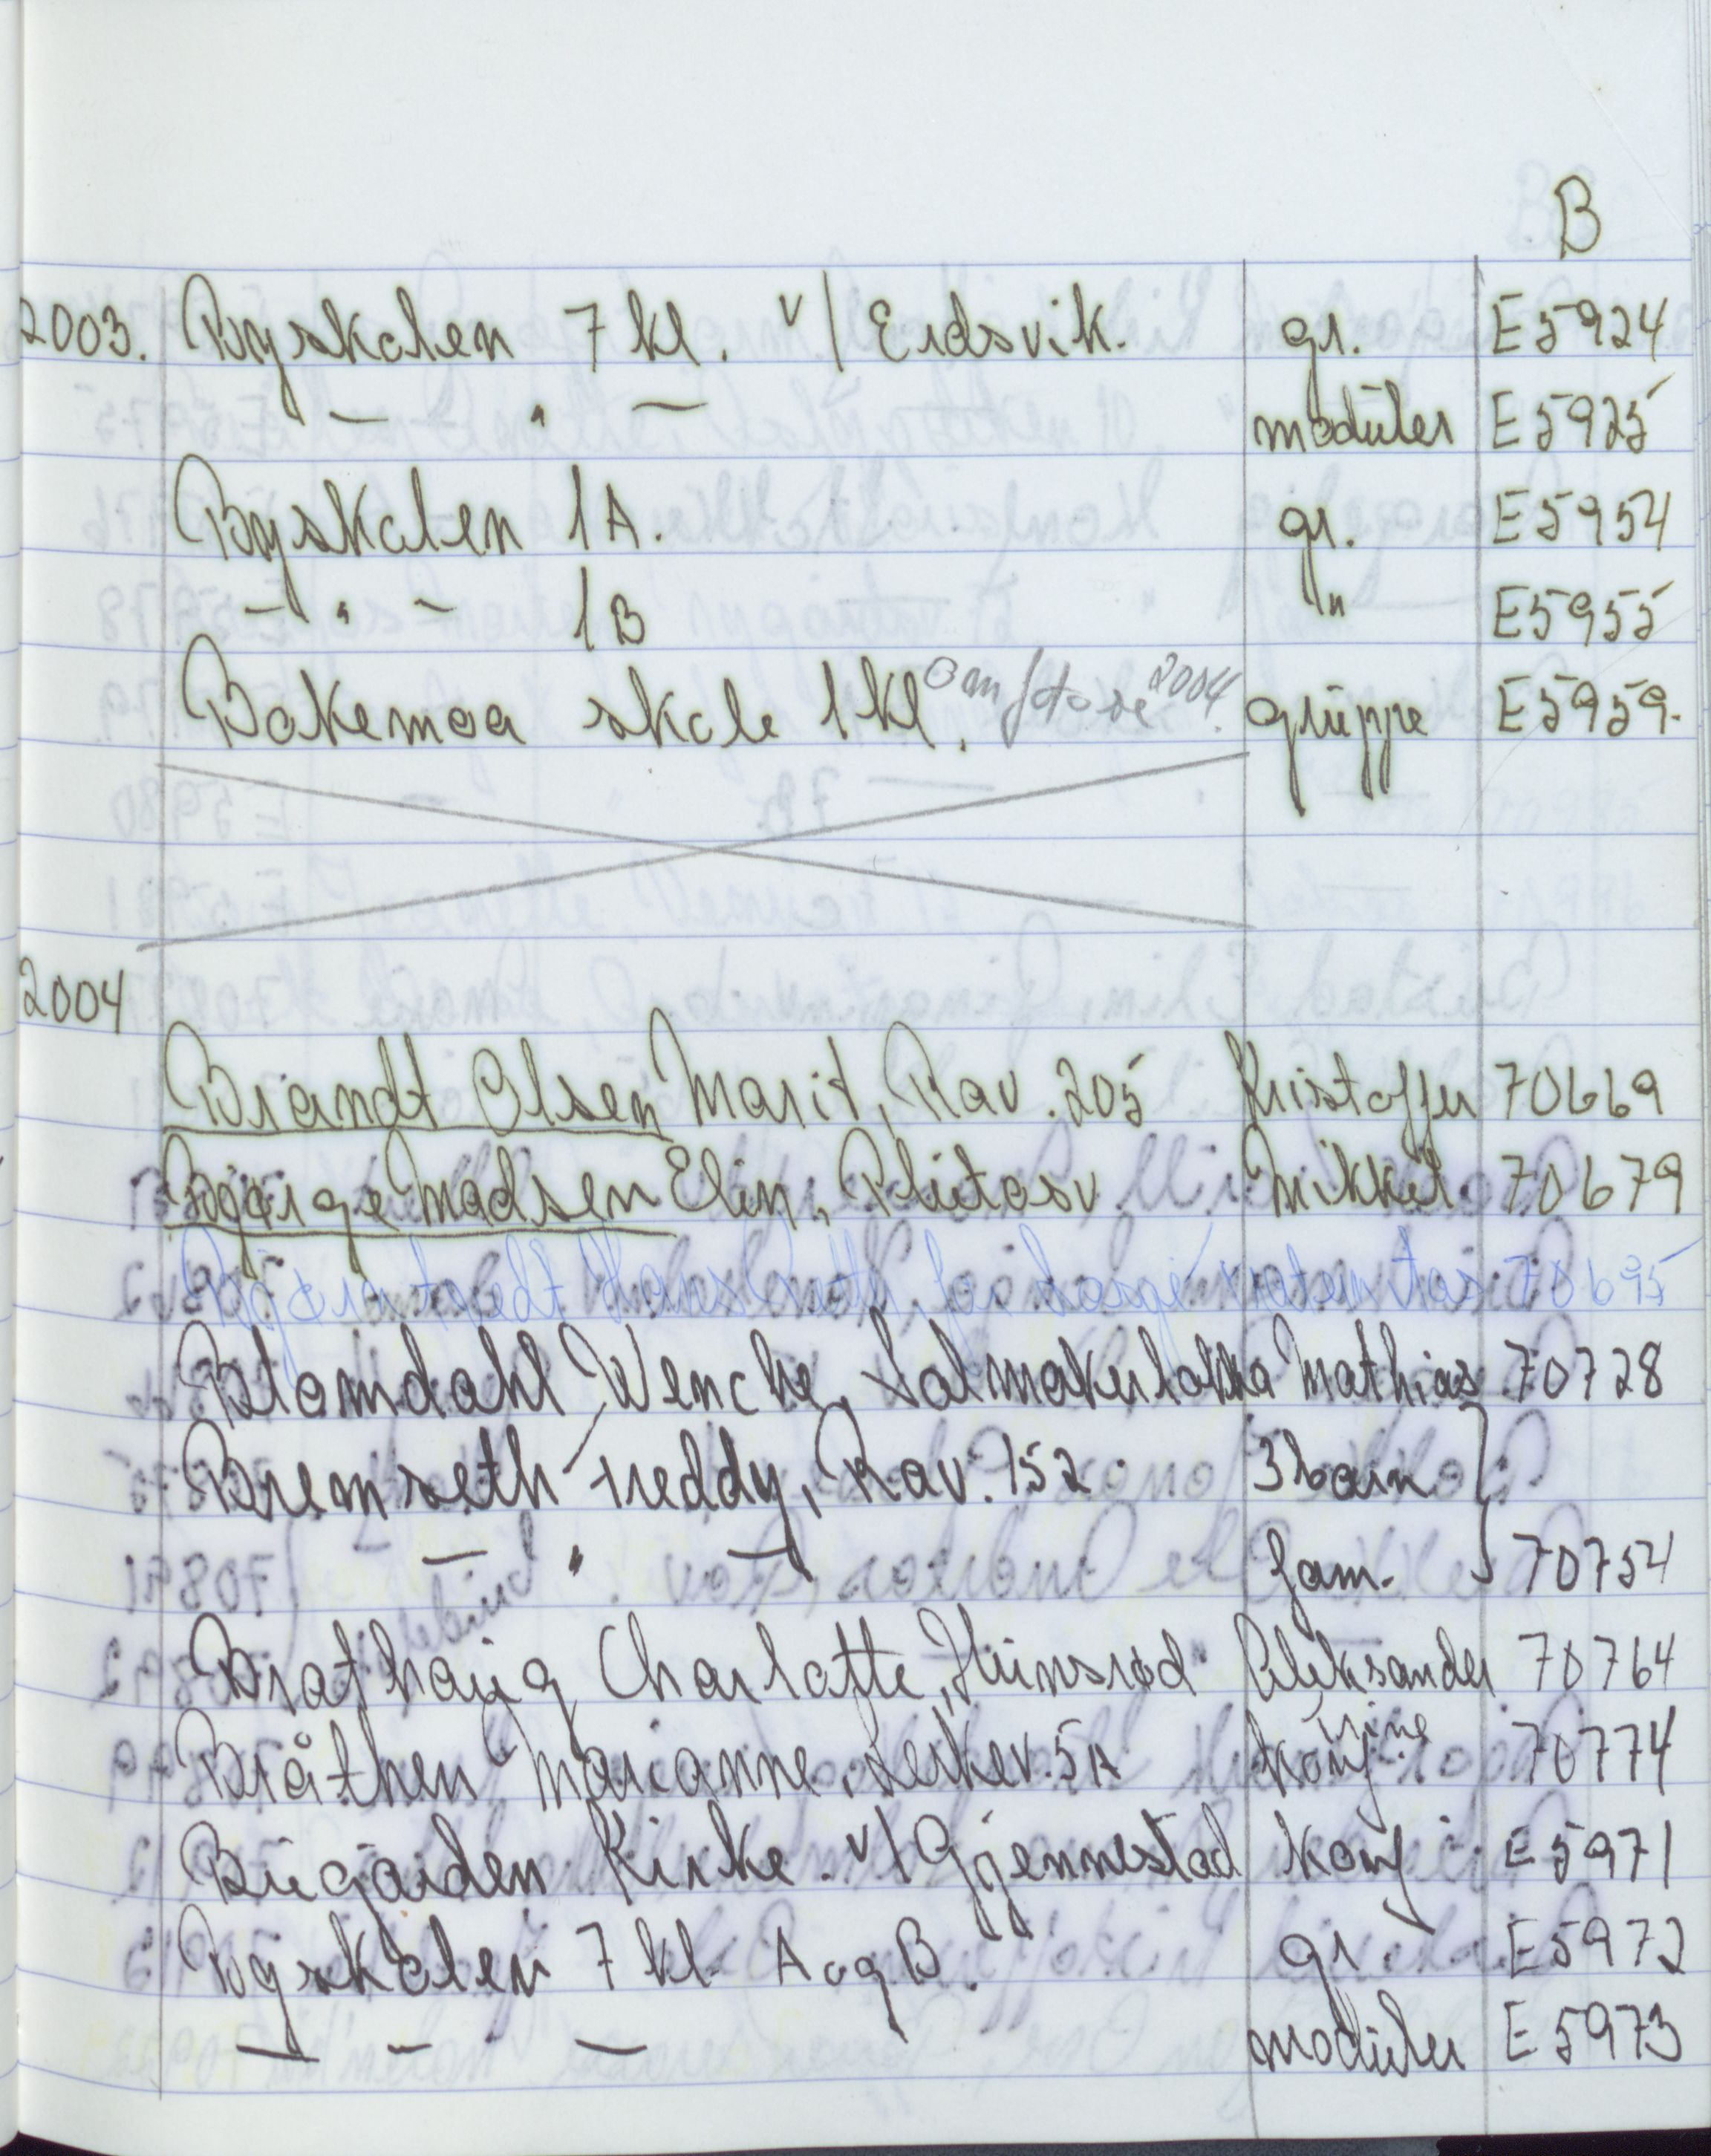 B
2003. Byskolen 7 kl. v/ Eidsvik. gr. E5924
— " — moduler E5925
Byskolen 1A. gr. E5954
— " — 1B " E5955
Bakemoa skole 1 kl. omfotose 2004. gruppe E5959.
2004
Brandt Olsen Marit, Rav. 205 Kristoffer 70669
Bjørge Madsen Elin, Plutov. Mikkel 70679
70695
Blomdahl Wencke, Salmakerløkka Mathias 70728
Bremseth Freddy, Rav. 152. 3 barn }
— " — fam. 70754
Brathaug Charlotte, Hunsrød Aleksander 70764
Bråthen Marianne, Lerkev. 5A konf. 70774
Bugården Kirke. v/ Gjennestad konf E5971
Byskolen 7 kl. A og B. gr. E5972
— - — moduler E5973